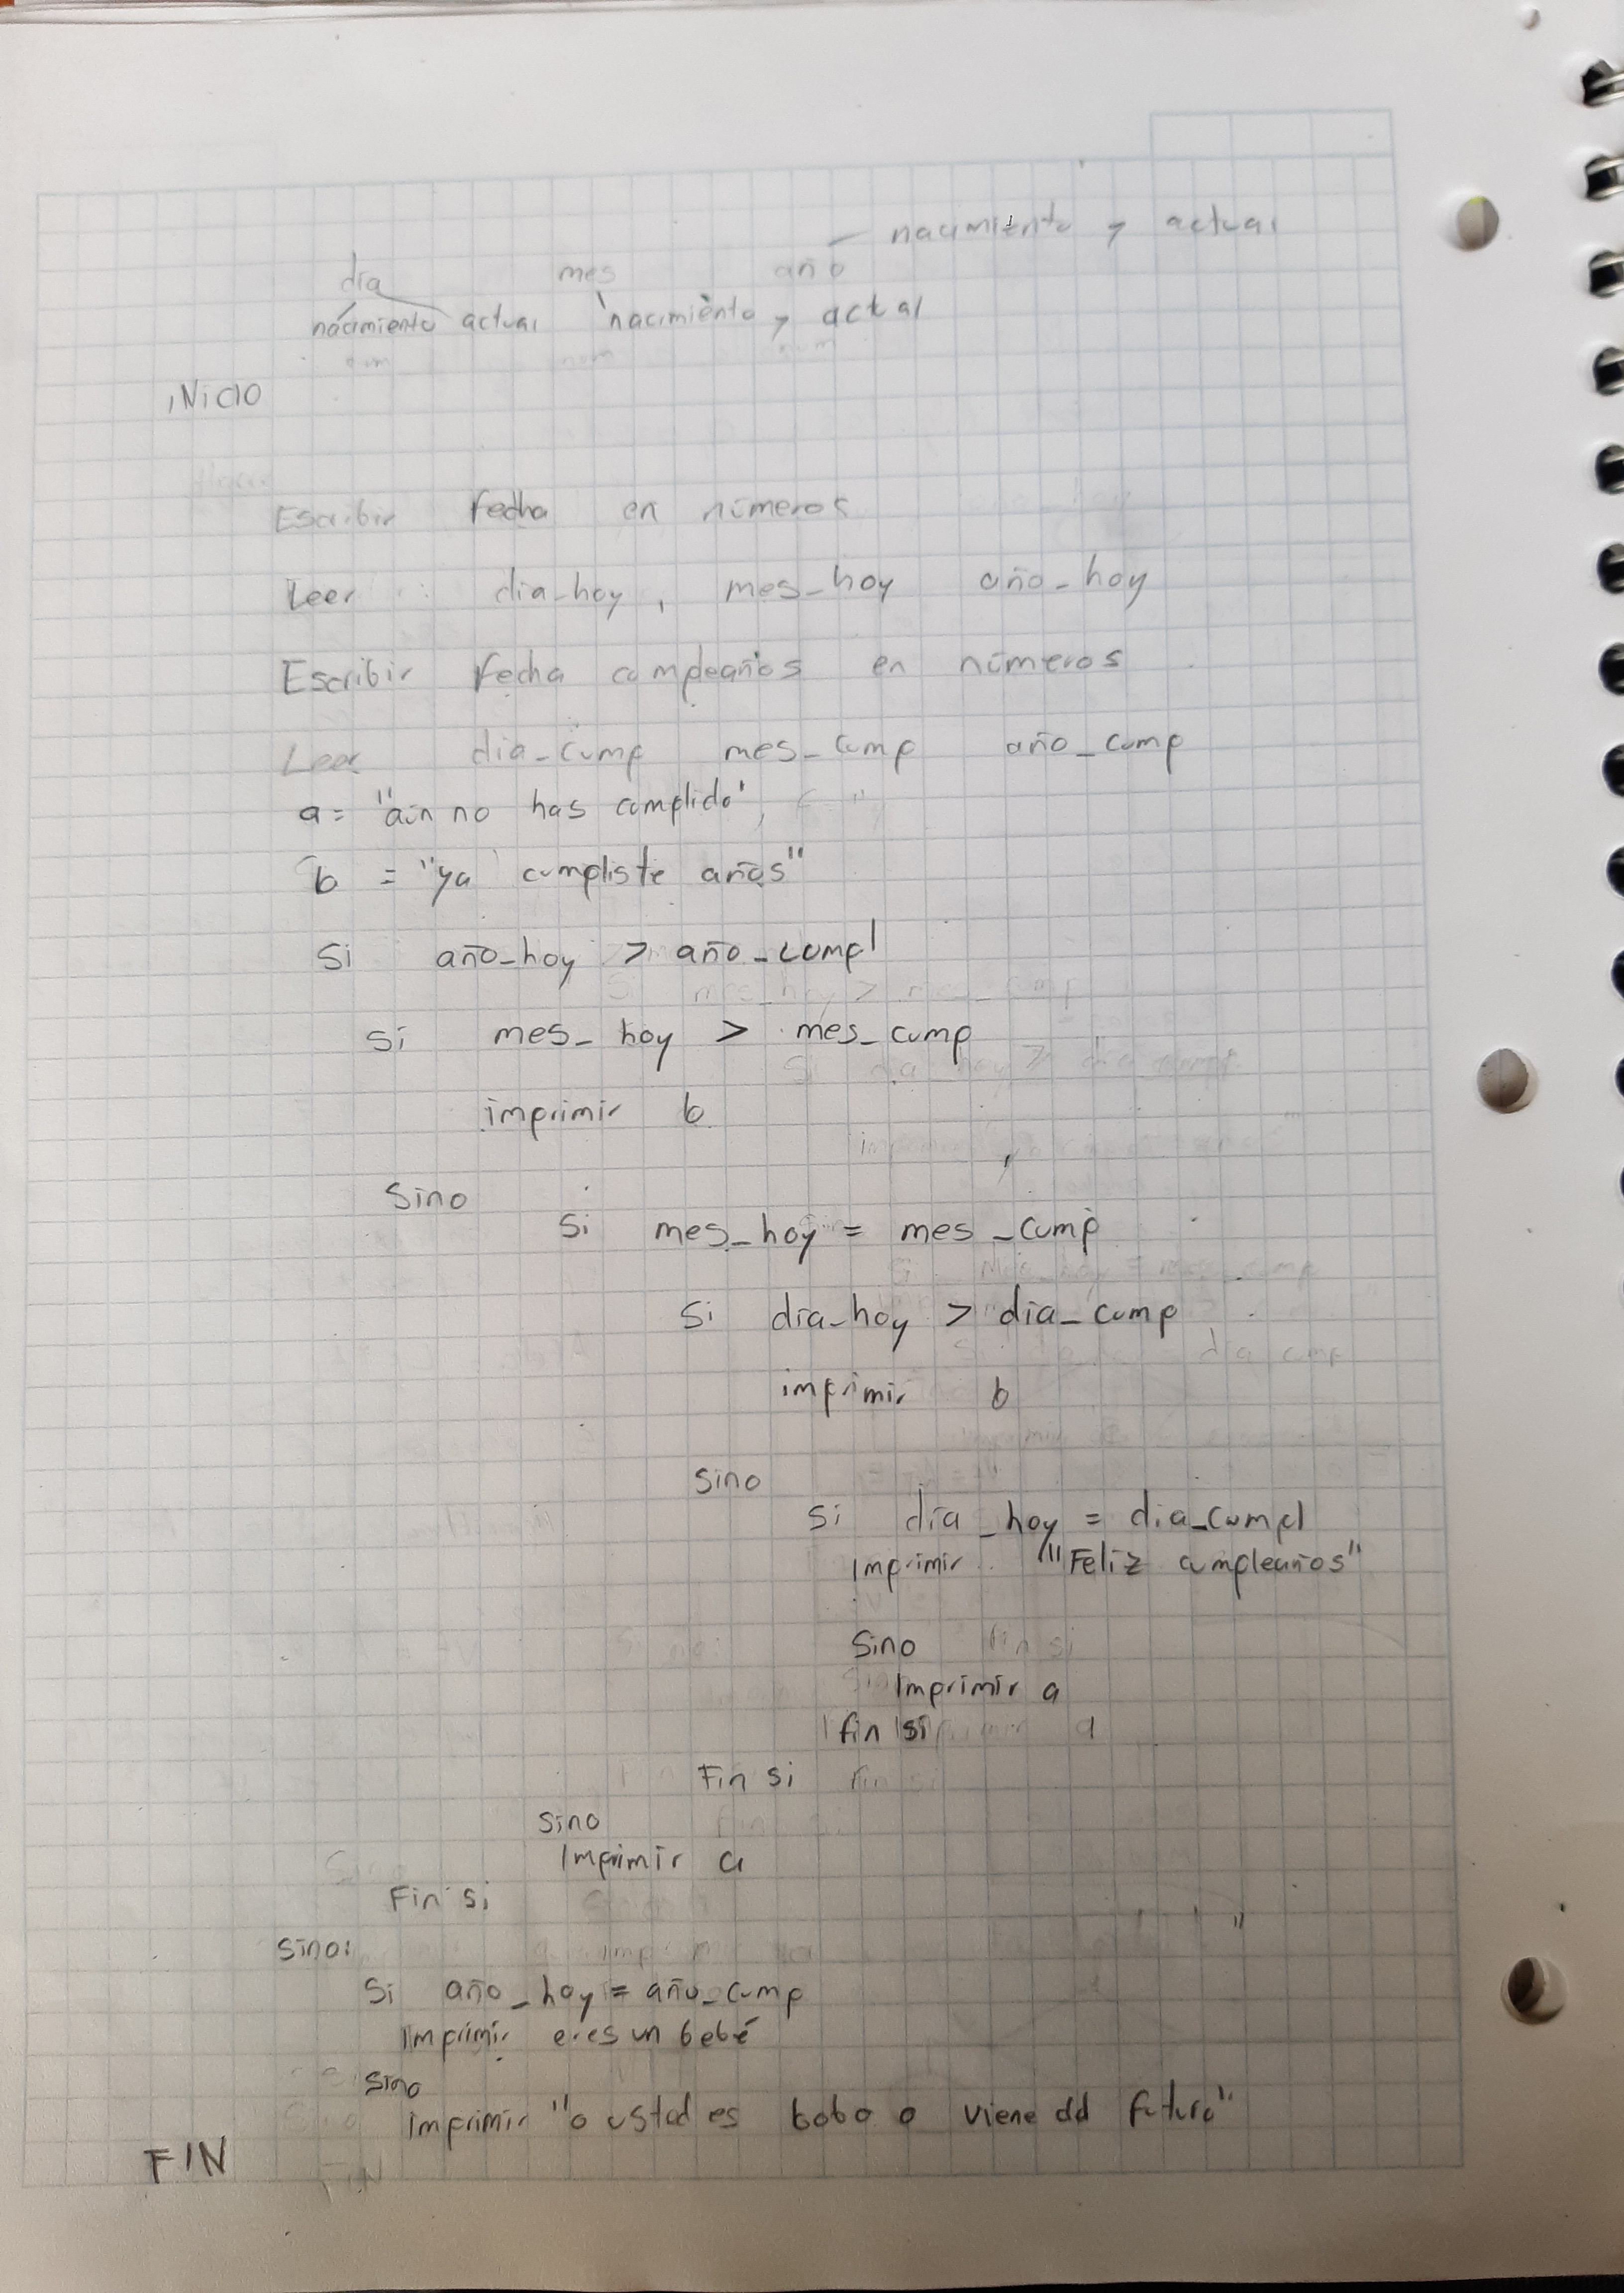 nacimiento y actual
dia mes año
nacimiento actual nacimiento y actal
iNiCIO
Escribir fecha en números
Leer dia_hoy, mes_hoy año_hoy
Escribir fecha cumpleaños en números
Leer dia_cump mes_cump año_cump
a = "aún no has cumplido"
b = "ya cumpliste años"
Si año_hoy > año_cumpl
si mes_hoy > mes_cump
imprimir b
Sino
Si mes_hoy = mes_cump
Si dia_hoy > dia_cump
imprimir b
Sino
Si dia_hoy = dia_cumpl
Imprimir "Feliz cumpleaños"
Sino
Imprimir a
fin si
Fin si
Sino
Imprimir a
Fin si
Sino:
Si año_hoy = año_cump
Imprimir eres un bebé
Sino
Imprimir "o usted es bobo o viene del futuro"
FIN